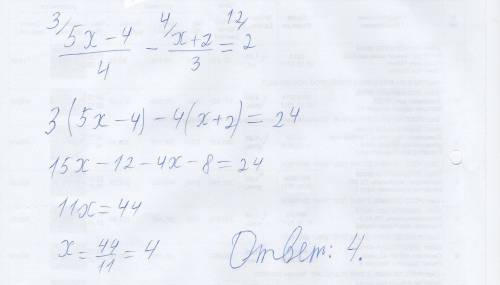 ³/(5x-4)/4 - ⁴/(x+2)/3 = ¹²/2
3(5x-4)-4(x+2)=24
15x-12-4x-8=24
11x=44
x=44/11=4 Ответ: 4.